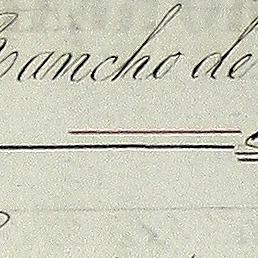 Rancho de